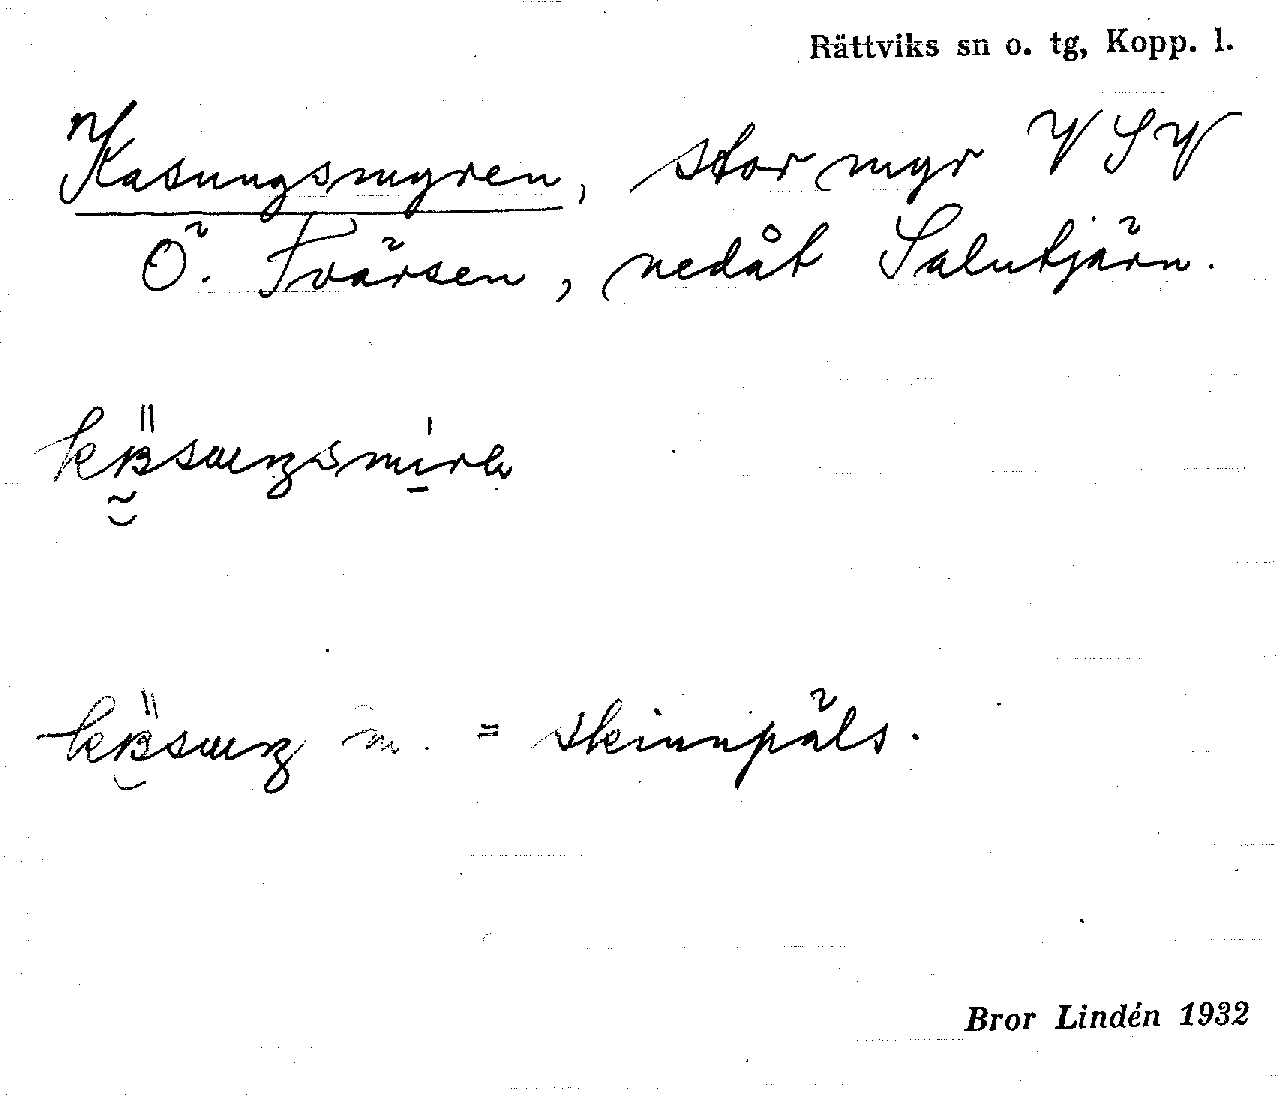 Rättviks sn o. tg, Kopp. l.
Kasungsmyren, stor myr VSV
Ö. Tvärsen, nedåt Salutjärn.
m. = skinnpäls.
Bror Lindén 1932